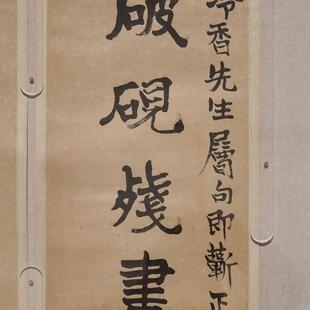 冷香先生屬句即蘄正
破硯殘書